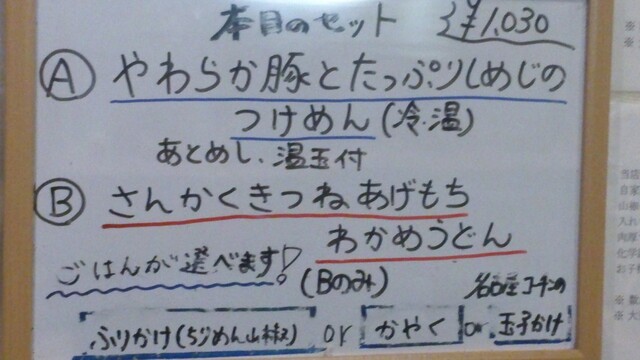 本日のセット ¥1,030
Ⓐ やわらか豚とたっぷりしめじの
つけめん(冷・温)
あとめし、温玉付
Ⓑ さんかくきつねあげもち
わかめうどん
ごはんが選べます! (Bのみ)
名古屋コーチンの
ふりかけ(ちりめん山椒) or かやく or 玉子かけ